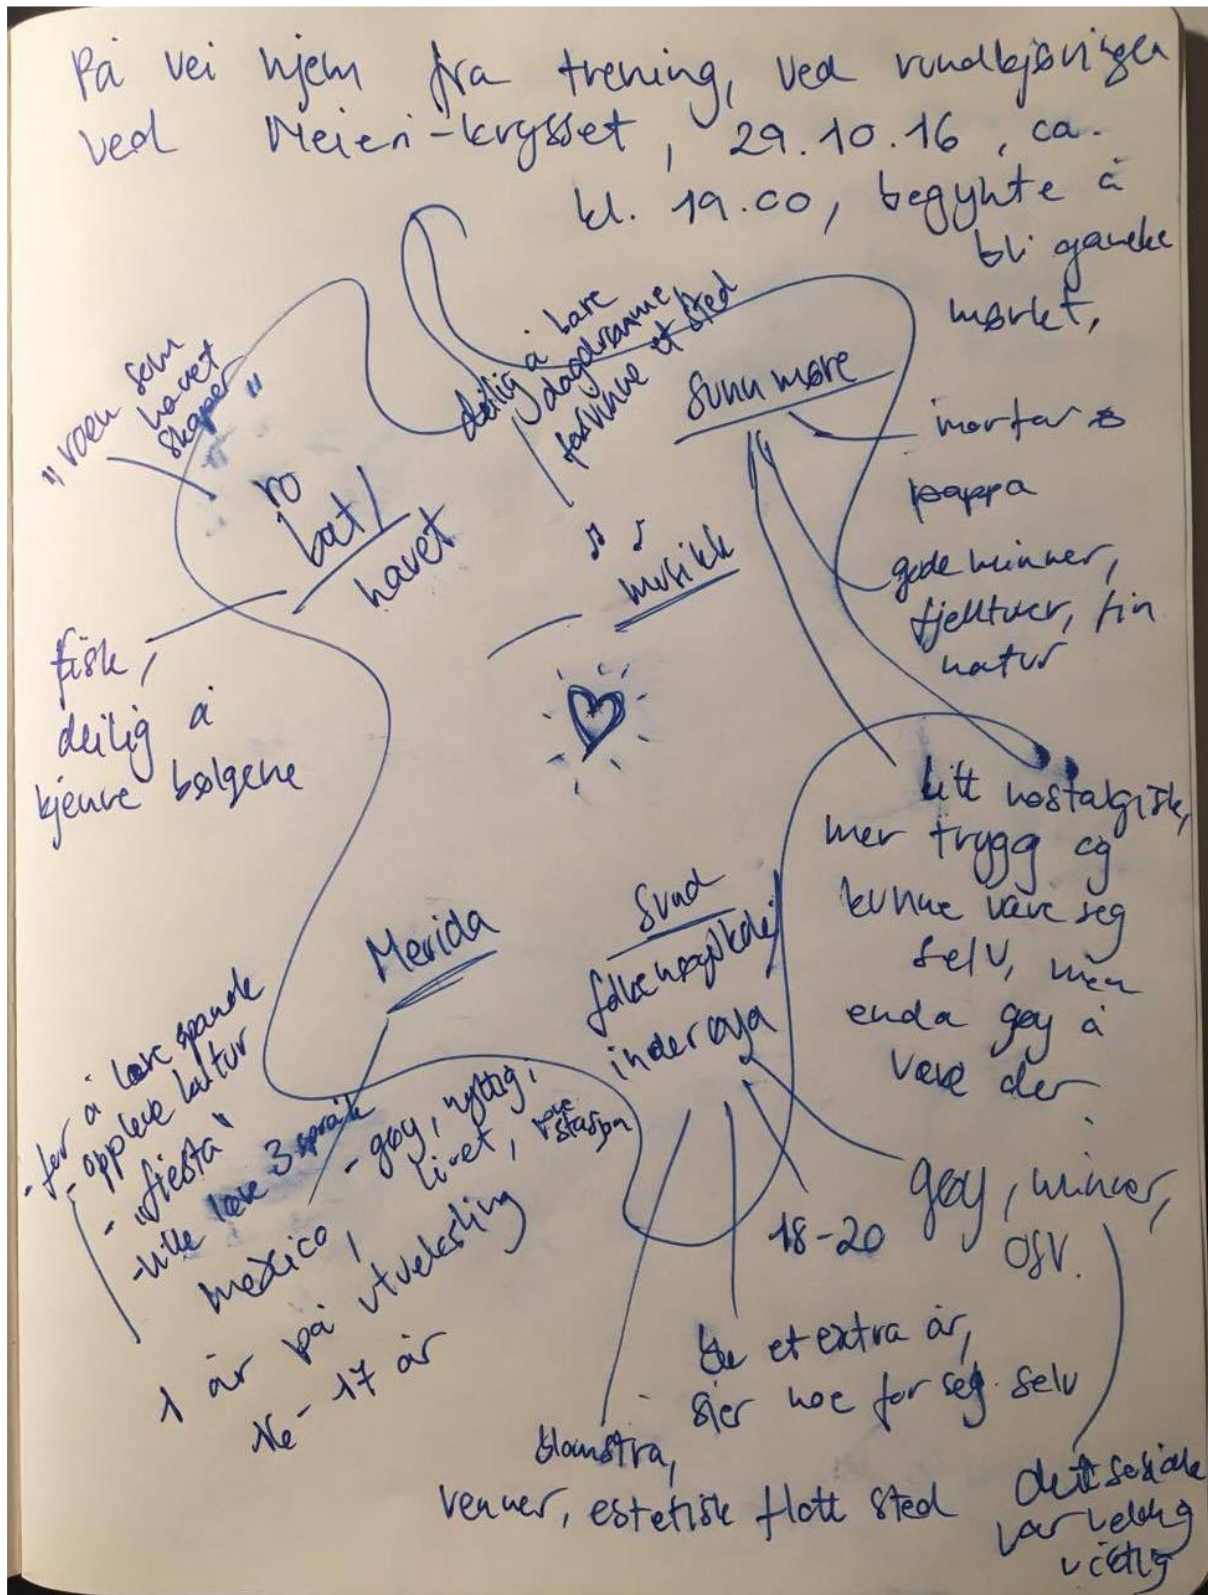 På vei hjem fra trening, ved rundkjøringen
ved Meieri-krysset, 29.10.16, ca.
kl. 19.00, begynte å
bli ganske
mørkt,
"roen som
havet
skaper"
ro
båt/
havet
fisk,
deilig å
kjenne bølgene
deilig å bare
dagdrømme,
forsvinne et sted
musikk
Sunnmøre
morfar
pappa
gode minner,
fjellturer, fin
natur
litt nostalgisk,
mer trygg og
kunne være seg
selv, men
enda gøy å
være der
Merida
- for å lære spansk
- oppleve kultur
- "fiesta"
- ville lære 3 språk
- gøy, nyttig,
livet,
mexico,
1 år på utveksling
16-17 år
Sund
inderøya
18-20
gøy, minner,
osv.
et extra år,
sier noe for seg selv
blomstra,
venner, estetisk flott sted
det sosiale
var veldig
viktig